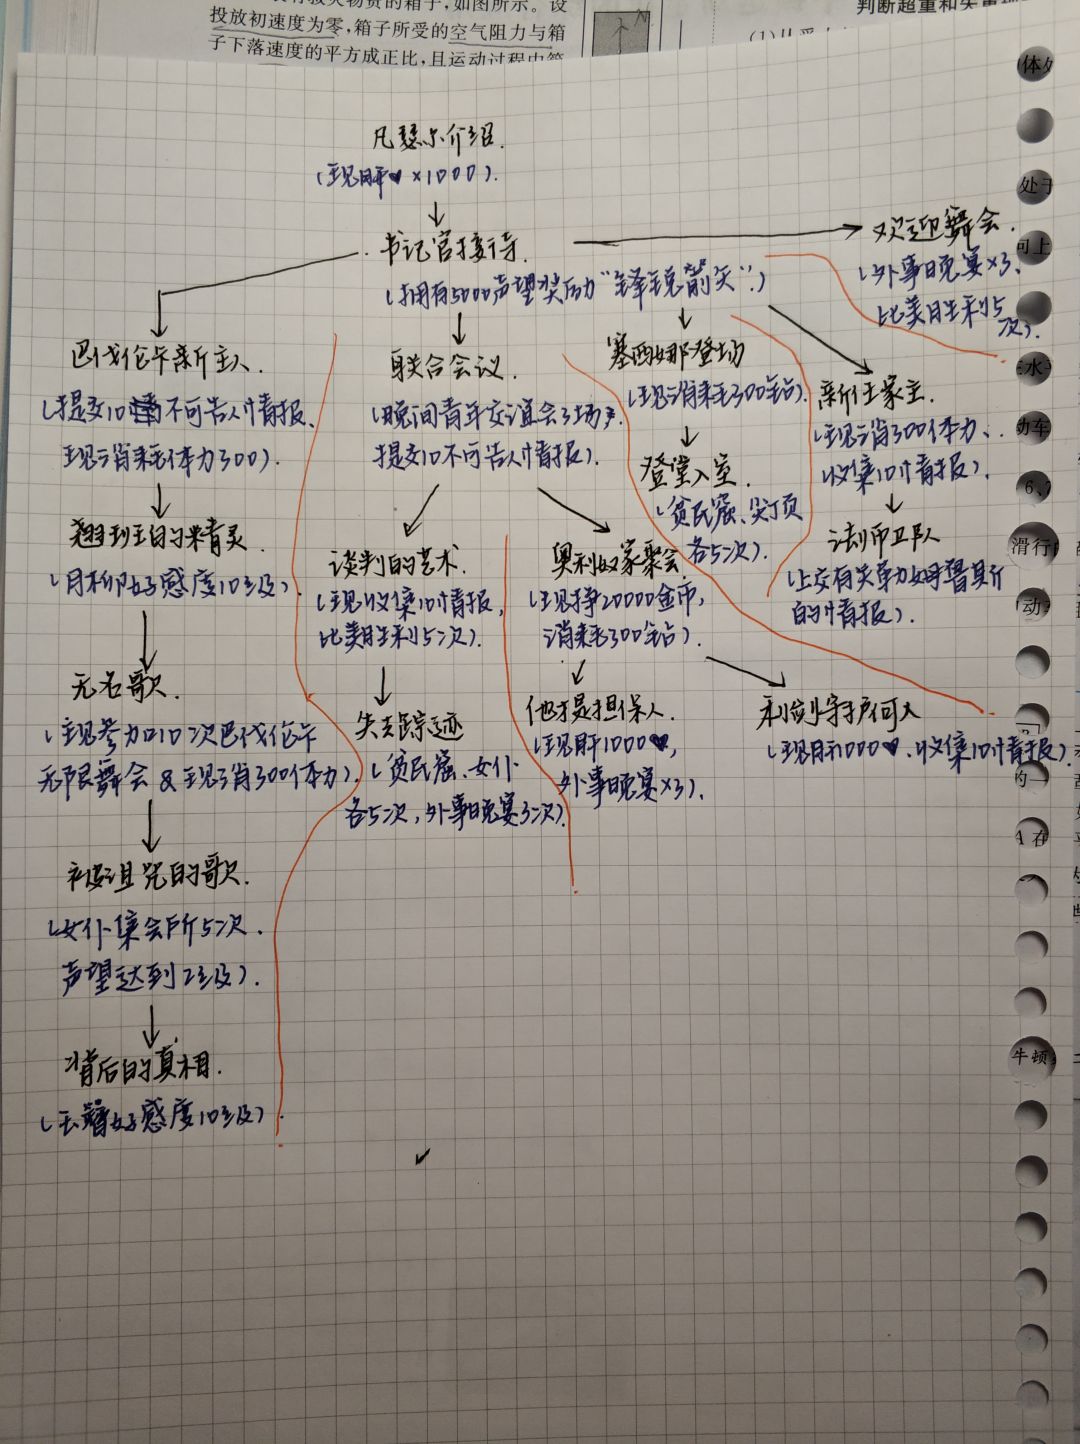 投放初速度为零,箱子所受的空气阻力与箱
子下落速度的平方成正比,且运动过程中箱
凡瑟尔介绍.
(现肝❤×1000).
书记官接待.
(拥有5000声望奖励“锋锐箭矢”.)
欢迎舞会.
(外事晚宴×3、
比美胜利5
次).
巴伐伦卡新主人.
(提交10不可告人情报、
现消耗体力300).
翘班的精灵.
(月柳好感度10级)
无名歌.
(现参加10次巴伐伦卡
无限舞会&现消300体力).
被诅咒的歌.
(女仆集会所5次.
声望达到2级).
背后的真相.
(玉簪好感度10级)
联合会议.
(晚间青年交谊会3场.
提交10不可告人情报).
谈判的艺术.
(现收集10情报,
比美胜利5次).
失去踪迹
(贫民窟、女仆
各5次,外事晚宴3次).
奥利奴家聚会
(现挣20000金币,
消耗300钻).
他才是担保人.
(现肝1000❤,
外事晚宴×3).
利剑守护何人
(现肝1000❤.收集10情报)
塞西娜登场
(现消耗300钻).
登堂入室.
(贫民窟、尖顶
各5次).
新任家主.
(现消300体力、
收集10情报).
法师卫队
(上交有关单力姆普斯
的情报).
滑行
牛顿